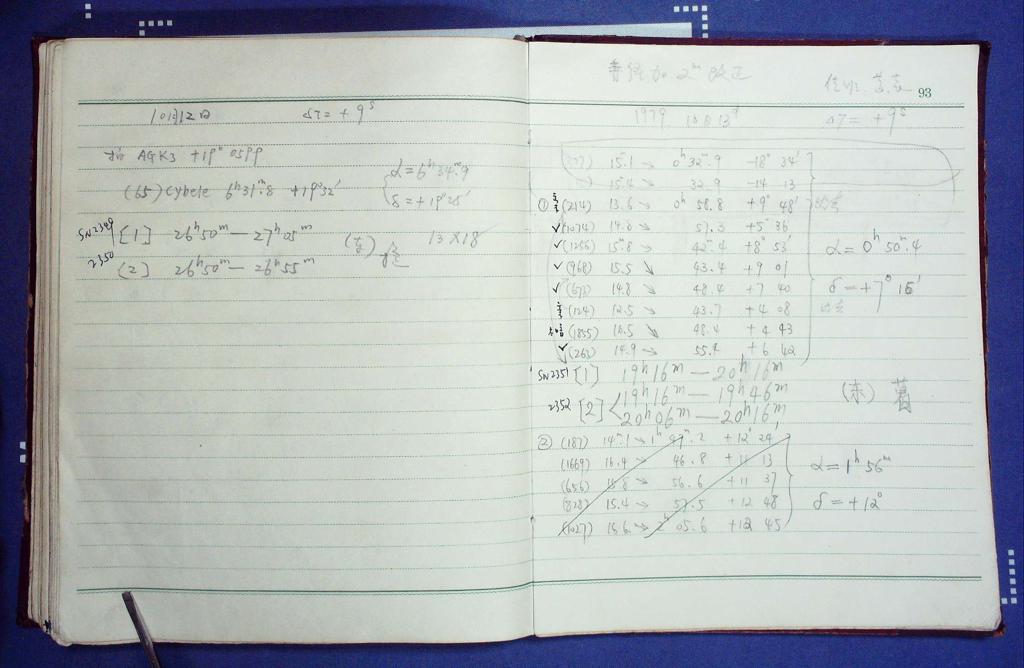 10月12日 ΔT = +9ˢ
AGK3 +19° 0599
(65) Cybele 6ʰ31ᵐ.8 +19°32′
α=6ʰ34ᵐ.9
δ=+19°25′
SN2349 [1] 26ʰ50ᵐ — 27ʰ05ᵐ
2350 (2) 26ʰ50ᵐ — 26ʰ55ᵐ
13×18
加 2ᵐ 改正
93
1979 10月13日 ΔT = +9ˢ
15.1 → 0ʰ32ᵐ.9 -18° 34′
15.4 → 32.9 -14 13
① (214) 13.6 → 0ʰ58.8 +9° 48′
✓(1074) 14.8 → 57.3 +5° 36
✓(1256) 15ᵐ.8 → 42ᵐ.4 +8° 53′
✓(968) 15.5 ↘ 43.4 +9 01
✓(673) 14.8 → 48.4 +7 40
(124) 12.5 → 43.7 +4 08
(1855) 16.5 ↘ 48.4 +4 43
✓(263) 14.9 → 55.4 +6 42
α=0ʰ50ᵐ.4
δ=+7°15′
SN2351 [1] 19ʰ16ᵐ — 20ʰ16ᵐ
2352 [2] 19ʰ16ᵐ — 19ʰ46ᵐ
20ʰ06ᵐ — 20ʰ16ᵐ
② (187) 14ᵐ.1 → 1ʰ47ᵐ.2 +12° 24′
(1669) 16.4 46.8 +11 13
(656) 15.8 → 56.6 +11 37
(828) 15.4 → 57.5 +12 48
(1027) 16.6 → 2ʰ05.6 +12 45
α=1ʰ56ᵐ
δ=+12°